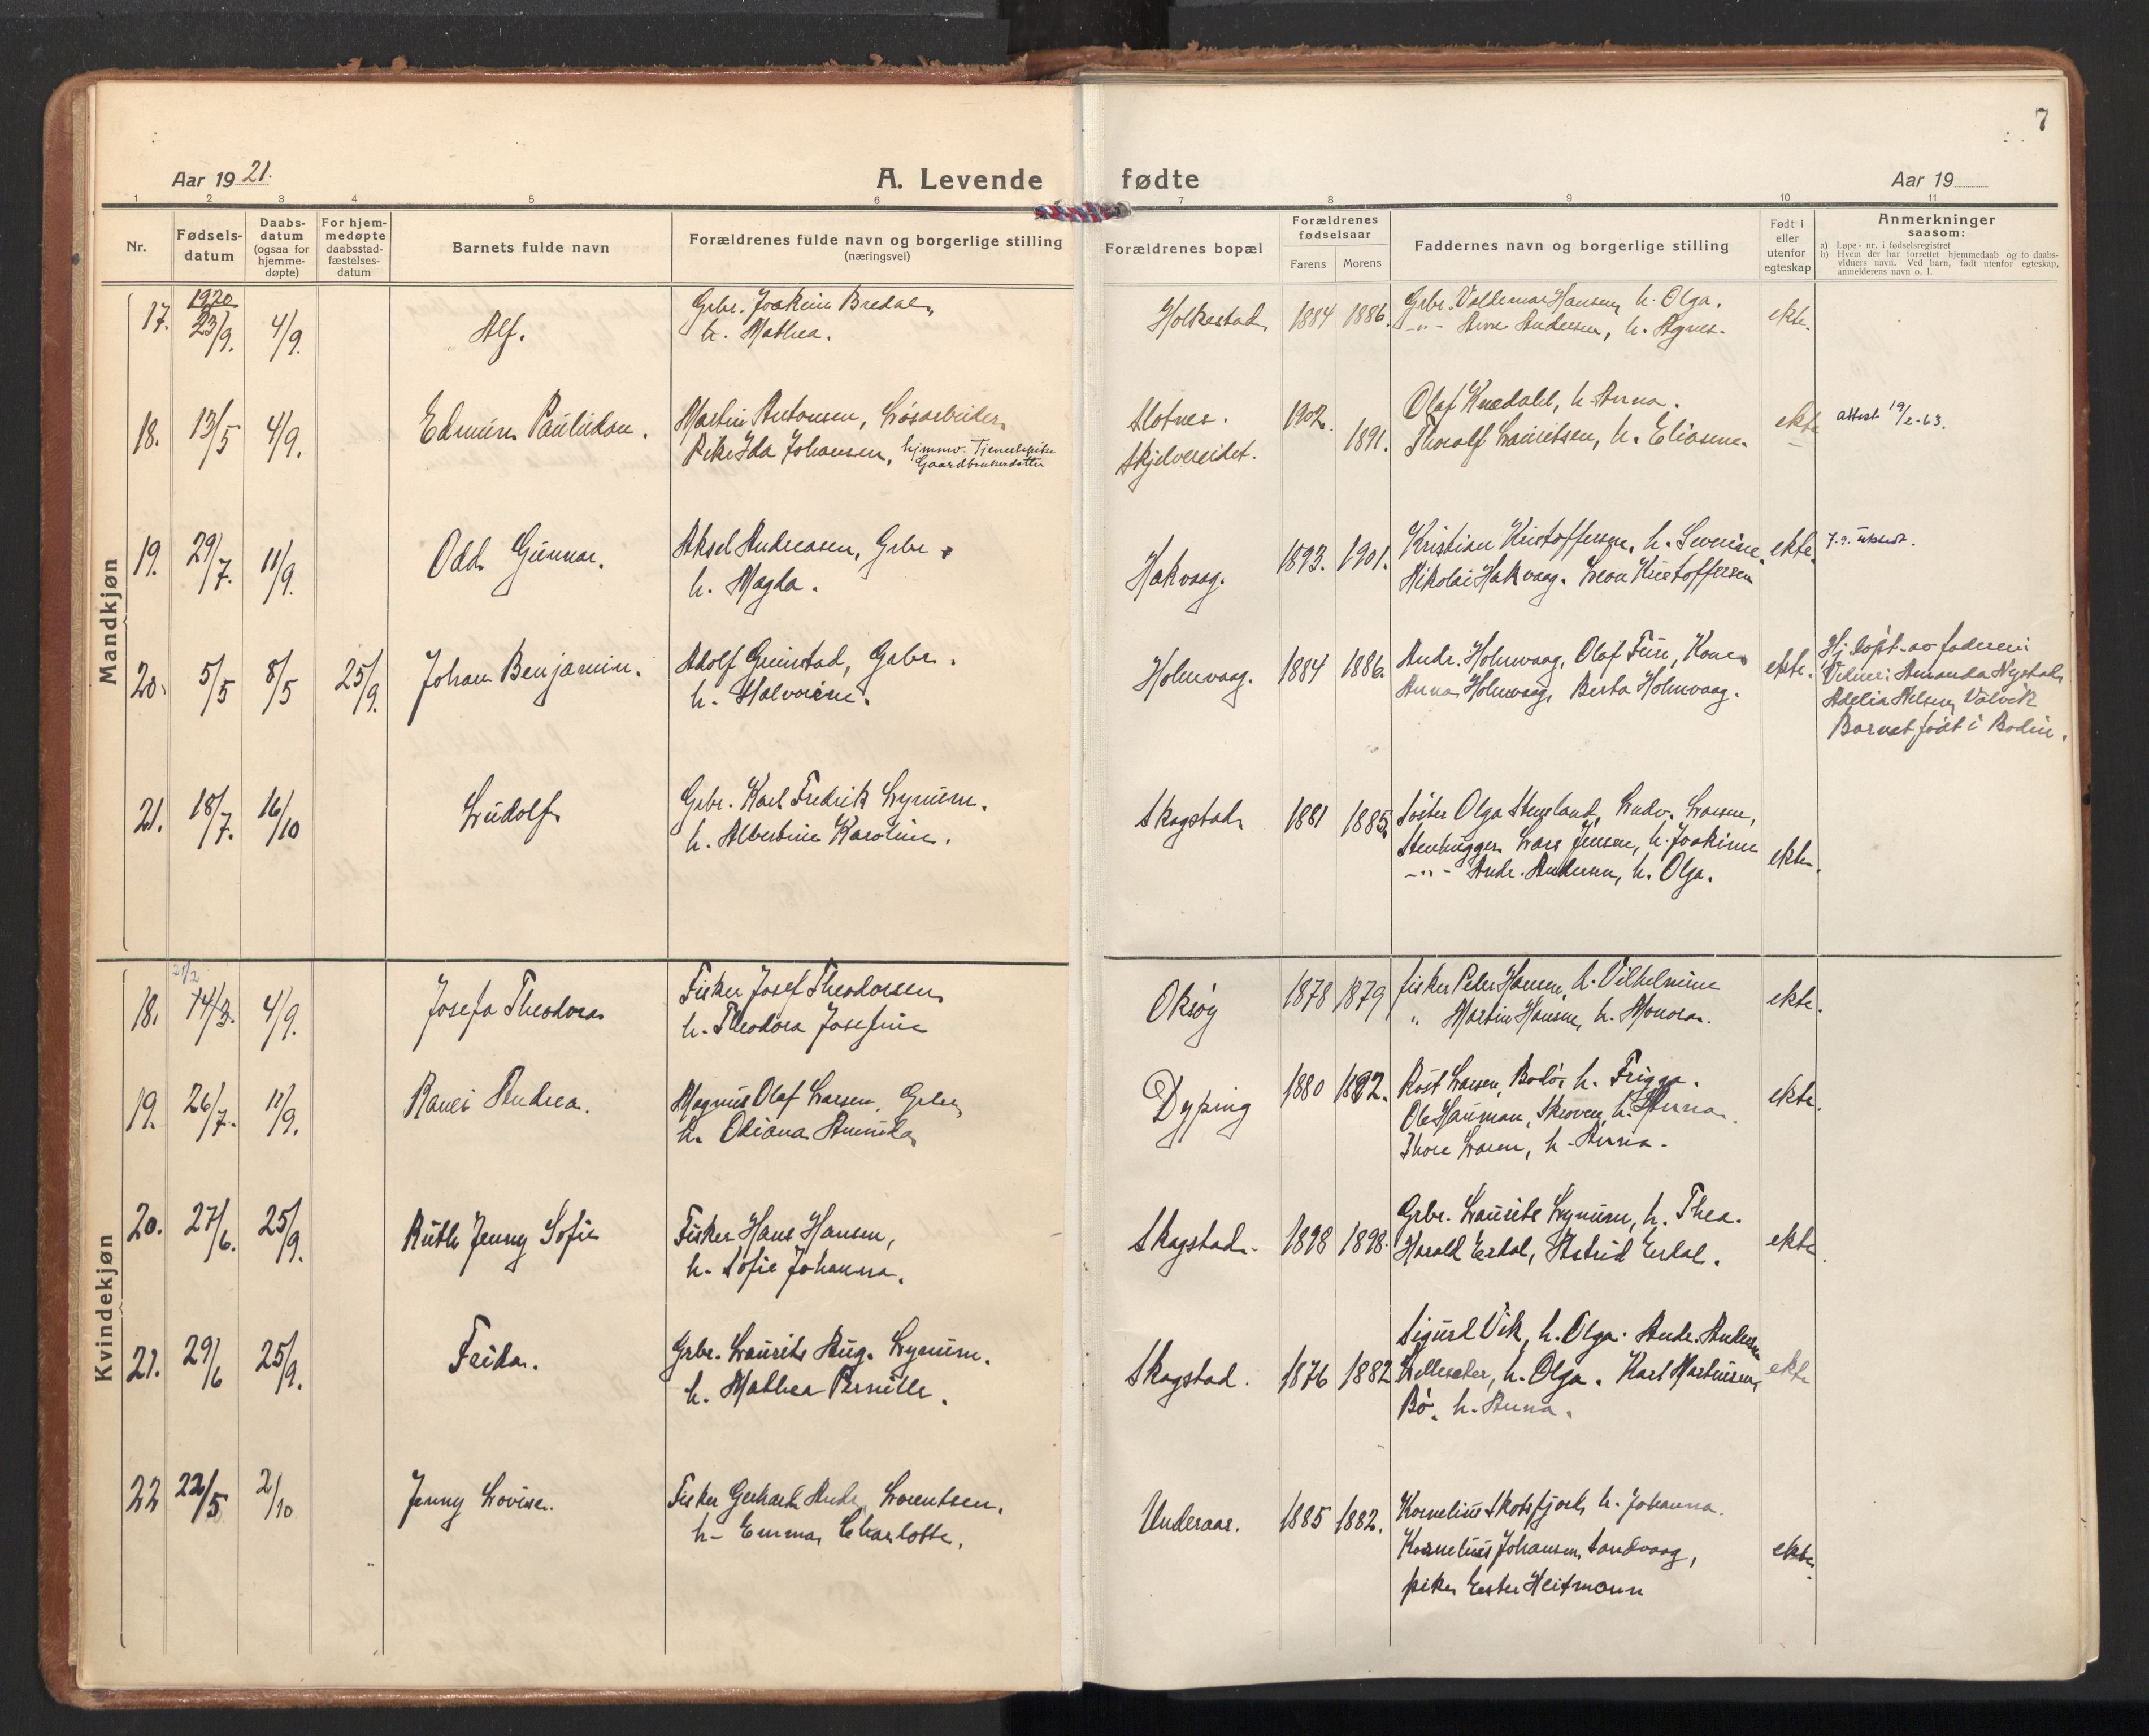 7
Aar 1921.
A. Levende
fødte
Aar 19
1 2 3 4 5 6 7 8 9 10 11
Nr.
Fødsels-
datum
Daabs-
datum
(ogsaa for
hjemme-
døpte)
For hjem-
medøpte
daabsstad-
fæstelses-
datum
Barnets fulde navn
Forældrenes fulde navn og borgerlige stilling
(næringsvei)
Forældrenes bopæl
Forældrenes
fødselsaar
Farens Morens
Faddernes navn og borgerlige stilling
Født i
eller
utenfor
egteskap
Anmerkninger
saasom:
a) Løpe-nr. i fødselsregistret
b) Hvem der har forrettet hjemmedaab og to daabs-
vidners navn. Ved barn, født utenfor egteskap,
anmelderens navn o. l.
Mandkjøn
17. 1920 23/9. 4/9. Alf.
Grbr. Joakim Bredal,
h. Mathea.
Holkestad 1884 1886.
Grbr. Valdemar Hansen, h. Olga.
-"- Arne Andersen, h. Agnes.
ekte.
18. 13/5 4/9. Edmun Paulidon.
Martin Antonsen, Løsarbeider
Pike Ida Johansen, hjemmv. Tjenestepike
Gaardbrukerdatter
Slotnes. 1902.
Skjelvereidet. 1891.
Olaf Knedahl, h. Anna.
Thoralf Lauritsen, h. Eliasine.
ekte
attest 19/2-63.
19. 29/7. 11/9. Odd Gunnar.
Aksel Andreasen, Grbr.
h. Magda.
Hakvaag. 1893. 1901.
Kristian Kristoffersen, h. Severine.
Nikolai Hakvaag. Leon Kristoffersen
ekte.
20. 5/5 8/5 25/9. Johan Benjamin.
Adolf Grimstad, Gabr.
h. Halvorine.
Holmvaag. 1884 1886.
Andr. Holmvaag, Olaf Fure, Kone
Anna Holmvaag, Berta Holmvaag.
ekte.
Hj. døpt av faderen:
Vidner: Amanda Nystad,
Adelia Nelsen, Valvik
Barnet født i Bodin.
21. 18/7. 16/10 Ludolf
Grbr. Karl Fredrik Lynum.
h. Albertine Karoline.
Skagstad 1881 1885.
Søster Olga Stensland, Ludv. Larsen,
Stenhugger Lars Jensen, h. Joakime
-"- Andr. Andersen, h. Olga.
ekte.
Kvindekjøn
18. 21/2 14/3. 4/9. Josefa Theodora
Fisker Josef Theodorsen
h. Theodora Josefine
Oksøy 1878 1879
fisker Peder Hansen, h. Vilhelmine
" Martin Hansen, h. Monora.
ekte.
19. 26/7. 11/9. Ranei Andrea.
Magnus Olaf Larsen, Grbr,
h. Odiana Annida
Dyping 1880 1892.
Røst Larsen, Bodø, h. Frigga.
Ole Hauman, Skroven, h. Anna.
Thore Larsen, h. Anna.
ekte.
20. 27/6. 25/9. Ruth Jenny Sofie
Fisker Hans Hansen,
h. Sofie Johanna.
Skagstad. 1898 1898.
Grbr. Laurits Lynum, h. Thea.
Harald Erdal, Astrid Erdal.
ekte.
21. 29/6 25/9. Frida.
Grbr. Laurits Aug. Lynum.
h. Mathea Pernille.
Skagstad. 1876 1882
Sigurd Vik, h. Olga. Andr. Andersen
h. Olga. Karl Martinsen,
Bø. h. Anna.
ekte
22 22/5 2/10 Jenny Lovise.
Fisker Gerhard Andr. Lorentsen.
h- Emma Charlotte.
Underaas. 1885 1882.
Kornelius Skotsfjord, h. Johanna.
Kornelius Johansen, Sandvaag,
pike Ester Heitmann
ekte.